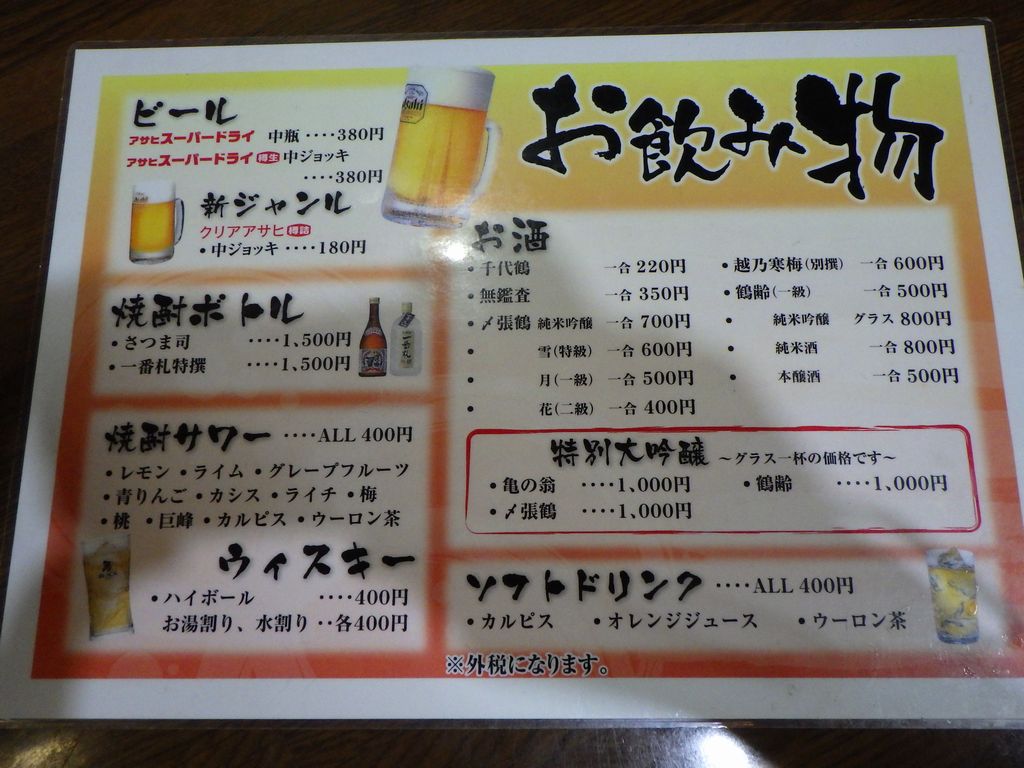 お飲み物
ビール
アサヒスーパードライ 中瓶 ････380円
アサヒスーパードライ 樽生 中ジョッキ
････380円
Asahi
新ジャンル
クリアアサヒ 樽詰
・中ジョッキ ････180円
焼酎ボトル
・さつま司 ････1,500円
・一番札特撰 ････1,500円
焼酎サワー ････ALL 400円
・レモン ・ライム ・グレープフルーツ
・青りんご ・カシス ・ライチ ・梅
・桃 ・巨峰 ・カルピス ・ウーロン茶
ウィスキー
・ハイボール ････400円
お湯割り、水割り ‥各400円
お酒
・千代鶴 一合 220円
・無鑑査 一合 350円
・〆張鶴 純米吟醸 一合 700円
・ 雪(特級) 一合 600円
・ 月(一級) 一合 500円
・ 花(二級) 一合 400円
・越乃寒梅(別撰) 一合 600円
・鶴齢(一級) 一合 500円
・ 純米吟醸 グラス 800円
・ 純米酒 一合 800円
・ 本醸酒 一合 500円
特別大吟醸 ～グラス一杯の価格です～
・亀の翁 ････1,000円 ・鶴齢 ････1,000円
・〆張鶴 ････1,000円
ソフトドリンク ････ALL 400円
・カルピス ・オレンジジュース ・ウーロン茶
※外税になります。